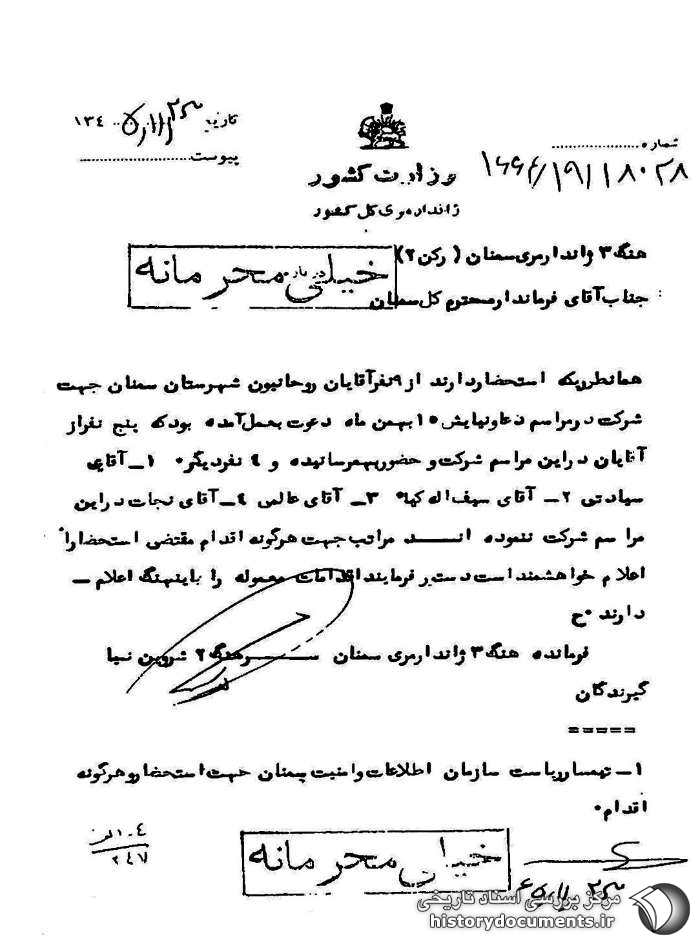 شماره
۱۶۶۴/۱۹۱۱۸۰۲۸
تاریخ ۱۳۴
پیوست
وزارت کشور
ژاندارمری کل کشور
هنگ ۳ ژاندارمری سمنان ( رکن ۲)
خیلی محرمانه
جناب آقای فرماندار محترم کل سمنان
درباره
همانطوریکه استحضار دارند از ۹ نفر آقایان روحانیون شهرستان سمنان جهت
شرکت در مراسم دعا و نیایش ۱۵ بهمن ماه دعوت بعمل آمده بود که پنج نفر از
آقایان در این مراسم شرکت و حضور بهمرسانیده و ٤ نفر دیگر ۰ ۱ـ آقای
سیادتی ۲ـ آقای سیف اله کیا ۰ ۳ـ آقای عالمی ٤ـ آقای نجات در این
مراسم شرکت ننموده انـــد مراتب جهت هرگونه اقدام مقتضی استحضاراً
اعلام خواهشمند است دستور فرمایند اقدامات معموله را باینهنگ اعلام ـ
دارند ۰ح
فرمانده هنگ ۳ ژاندارمری سمنان ســـرهنگ ۲ شروین نیا
گیرندگان
=====
۱ـ تیمسار ریاست سازمان اطلاعات و امنیت سمنان جهت استحضار و هرگونه
اقدام ۰
خیلی محرمانه
۲٤۷
مرکز بررسی اسناد تاریخی
historydocuments.ir